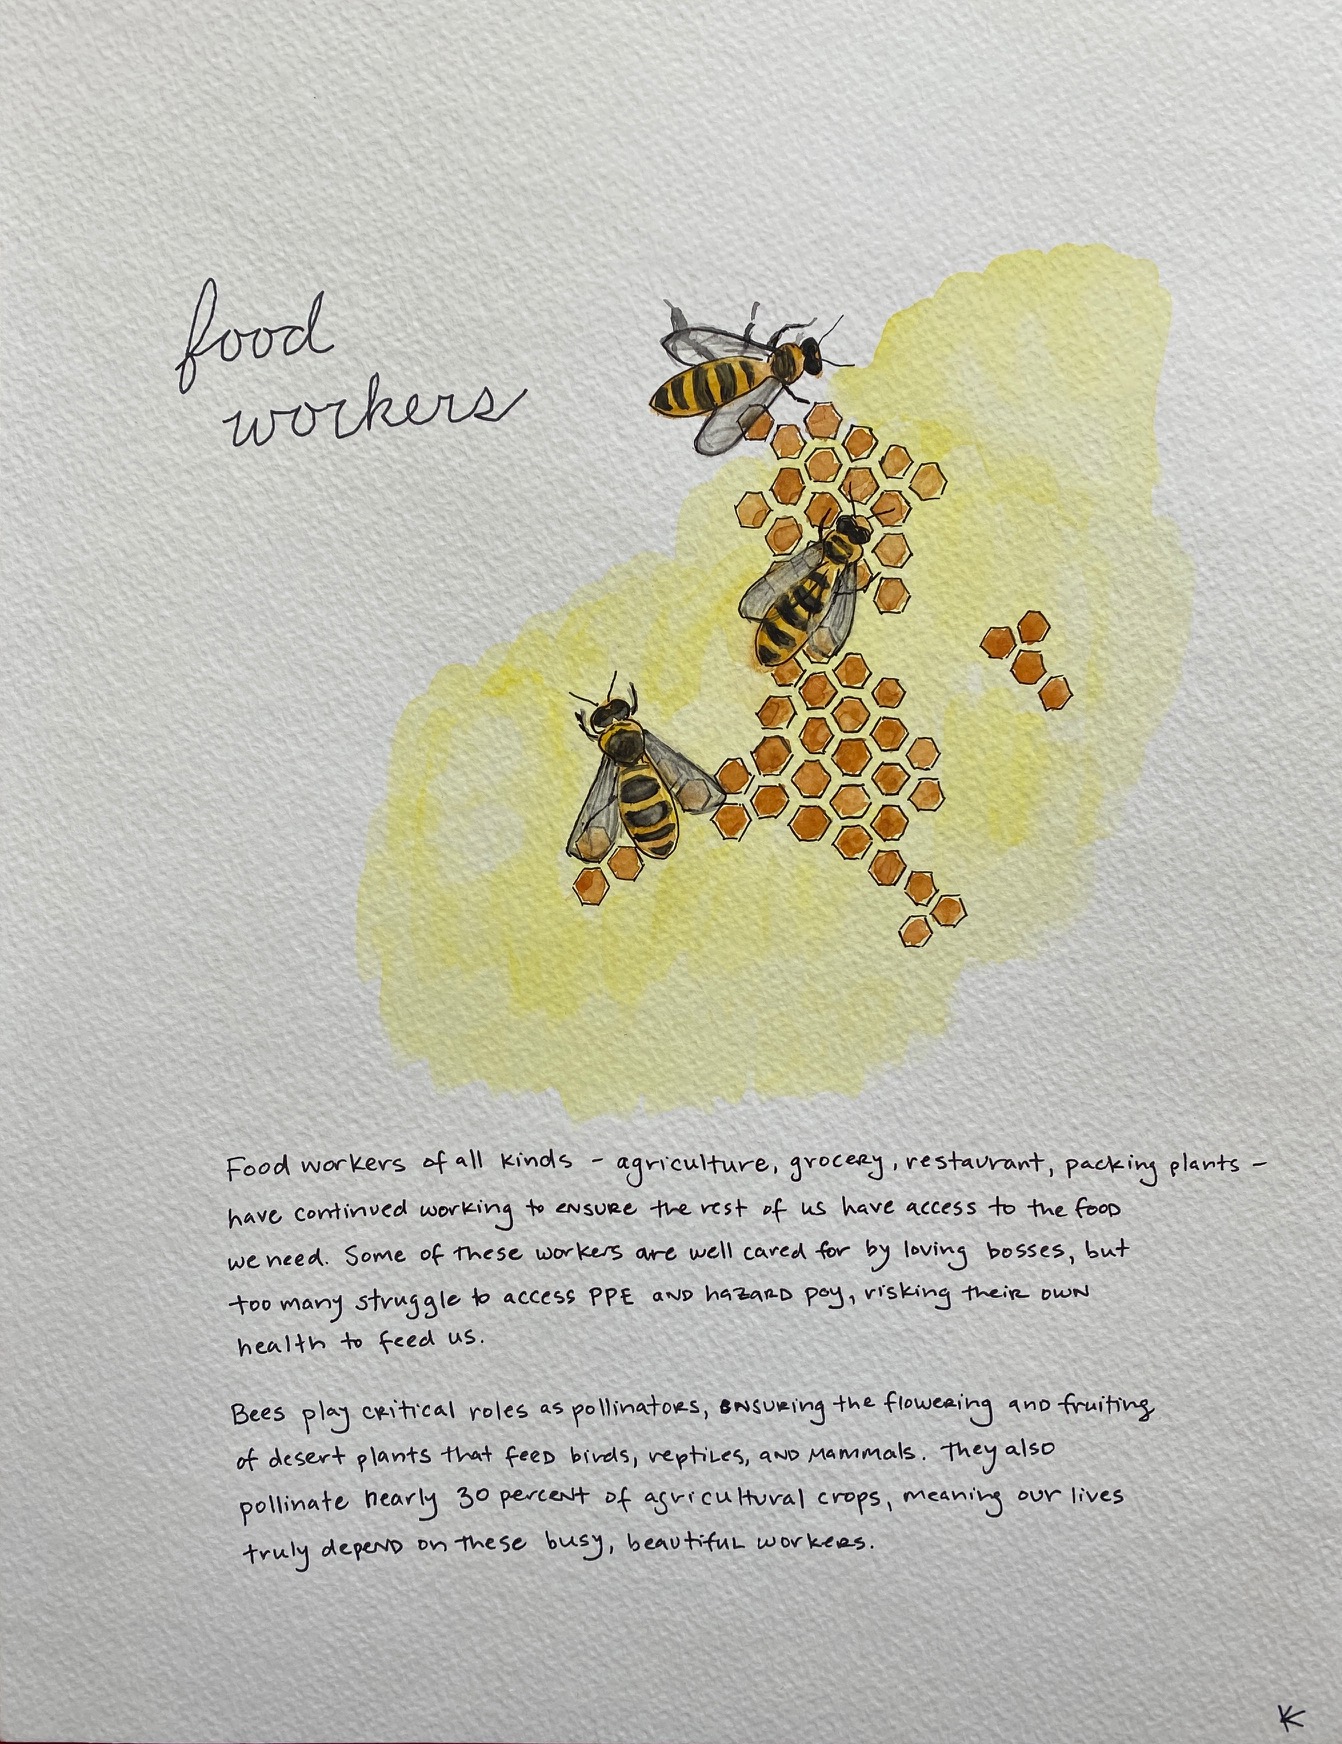 food
workers
Food workers of all kinds - agriculture, grocery, restaurant, packing plants -
have continued working to ensure the rest of us have access to the food
we need. Some of these workers are well cared for by loving bosses, but
too many struggle to access PPE and hazard pay, risking their own
health to feed us.
Bees play critical roles as pollinators, ensuring the flowering and fruiting
of desert plants that feed birds, reptiles, and mammals. They also
pollinate nearly 30 percent of agricultural crops, meaning our lives
truly depend on these busy, beautiful workers.
K